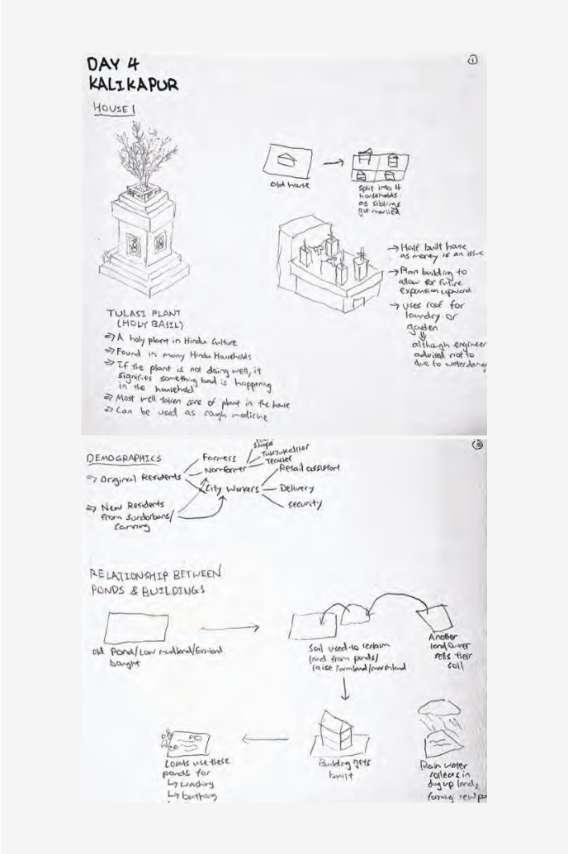 DAY 4
KALIKAPUR
1
HOUSE 1
old house
split into 4
households
as siblings
got married
→ Half built house
as money is an issue
→ Plan building to
allow for future
expansion upward
→ uses roof for
laundry or
garden
although engineer
advised not to
due to water
TULASI PLANT
(HOLY BASIL)
⇒ A holy plant in Hindu Culture
⇒ Found in many Hindu Households
⇒ If the plant is not doing well, it
signifies something bad is happening
in the household
⇒ Most well taken care of plant in the house
⇒ Can be used as cough medicine
DEMOGRAPHICS
⇒ Original Residents
Farmers
Nonfarmer
City Workers
Teacher
Retail assistant
Delivery
Security
⇒ New Residents
from Sundarbans/
Canning
RELATIONSHIP BETWEEN
PONDS & BUILDINGS
old Pond/Low
bought
Soil used to reclaim
land from ponds/
raise farmland/
Another
landowner
sells their
soil
Locals use these
ponds for
↳ washing
↳ bathing
Building gets
built
Rain water
collects in
dug up land,
forming new